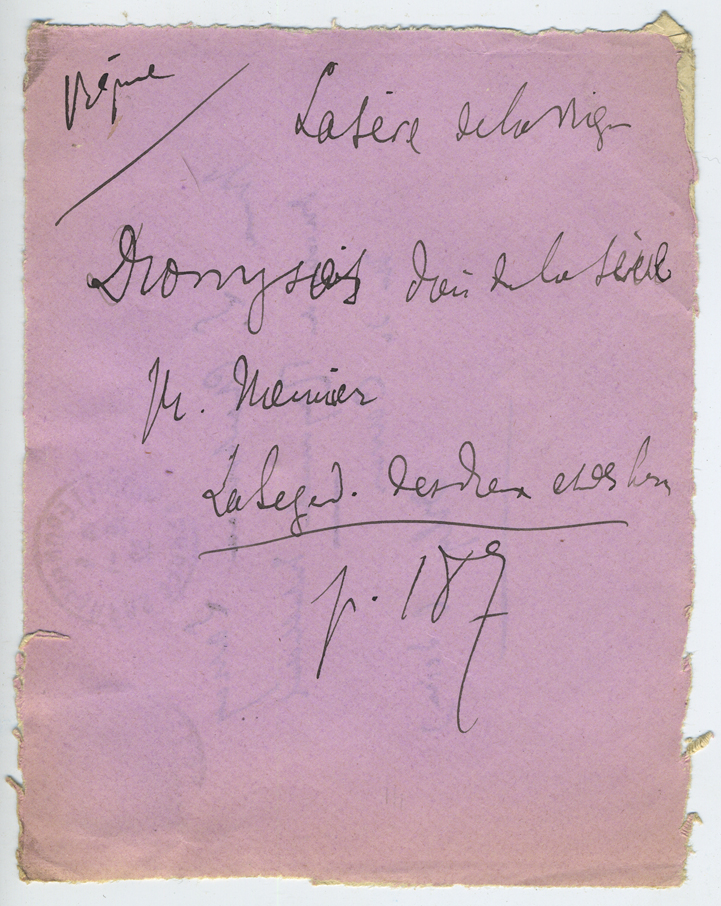 Vigne
La sève de la vigne
Dionysos dieu de la sève
M. Meunier
La Légend. des dieux et des
p. 187